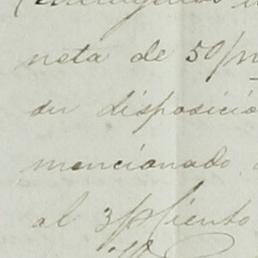 neta de 50/m
su disposició
mencionado
al 3 p% Ciento